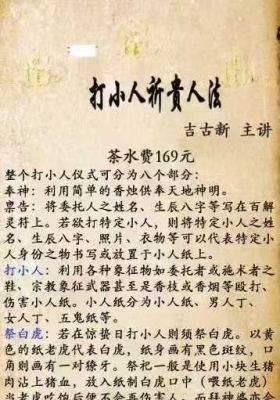 打小人祈貴人法
吉古新 主讲
茶水费169元
整个打小人仪式可分为八个部分：
奉神：利用简单的香烛供奉天地神明。
禀告：将委托人之姓名、生辰八字等写在百解
灵符上。若欲打特定小人，则将特定小人之姓
名、生辰八字、照片、衣物等可以代表特定小
人身份之物书写或放置于小人纸上。
打小人：利用各种象征物如委托者或施术者之
鞋、宗教象征武器甚至是香枝或香烟等殴打、
伤害小人纸。小人纸分为小人纸、男人丁、
女人丁、五鬼纸等。
祭白虎：若在惊蛰日打小人则须祭白虎。以黄
色的纸老虎代表白虎，纸身画有黑色斑纹，口
角则画有一对獠牙。祭祀一般是使用小块生猪
肉沾上猪血，放入纸制白虎口中（喂纸老虎）